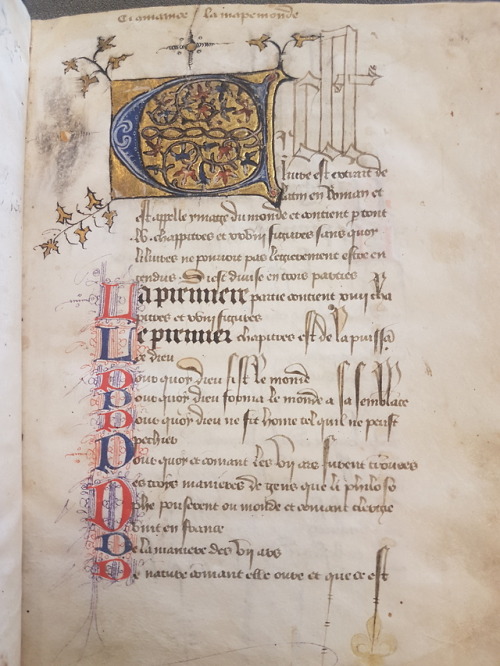 Ci comance la mapemonde
Cilz livre est extrait de
latin en Roman et
est appelle ymage du monde et contient p tout
lv. chappitres et xxviii figures sans quoy
li livres ne pouroit pas legierement estre en
tendus. Si est divise en trois parties
La premiere partie contient xiiii cha
pitres et viii figures
Le premier chapitres est de la puissa
ce dieu
Pour quoy dieu fist le monde
Pour quoy dieu forma le monde a sa semblace
Pour quoy dieu ne fit home tel quil ne peust
pechier
Pour quoy et comant les vii ars furent trouvees
Des trois manieres de gens que li philoso
phe poserent ou monde et comant clergie
vint en france
De la maniere des vii ars
De nature comant elle ovre et que ce est